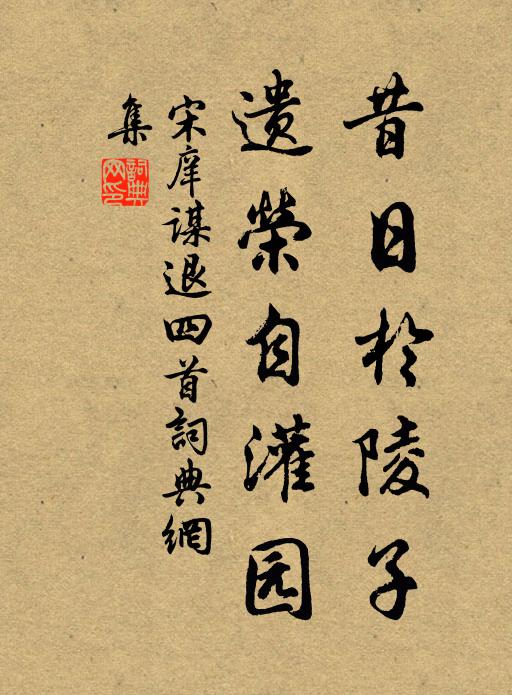 昔日於陵子
遗榮自灌园
宋庠谋退四首詞典網
集
詞典网印